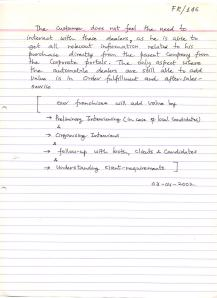 FR/186
The customer does not feel the need to
interact with these dealers, as he is able to
get all relevant information relative to his
purchase directly from the parent company from
the corporate portals. The only aspect where
the automobile dealers are still able to add
value is in order fulfillment and after-sales-
service
Our franchisees will add value by
→ Preliminary Interviewing (in case of local candidates)
&
→ Organising Interviews
&
→ follow-up with both, clients & candidates
&
→ Understanding client-requirements
03-04-2002